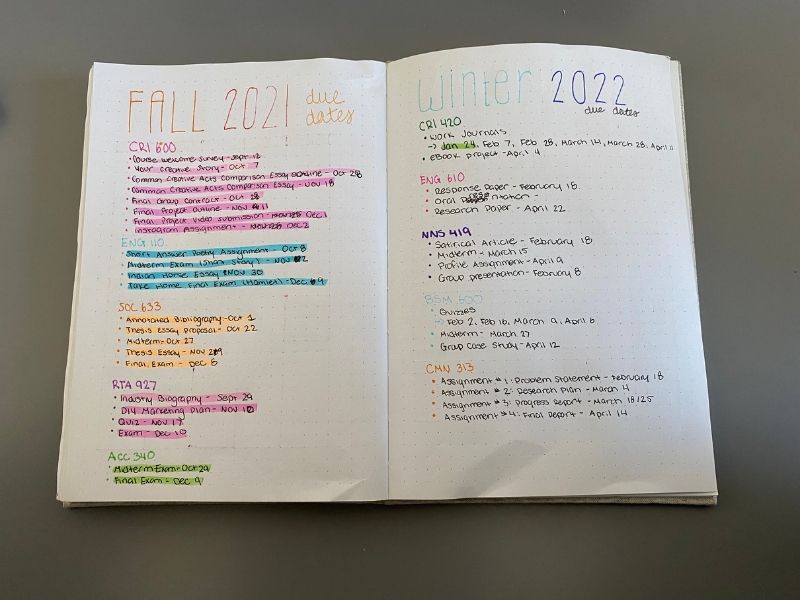 FALL 2021 due dates
CRI 600
• Course welcome survey - Sept 12
• Your Creative Story - Oct 7
• Common Creative Acts Comparison Essay Outline - Oct 28
• Common Creative Acts Comparison Essay - Nov 18
• Final Group Contract - Oct 28
• Final Project Outline - Nov 11
• Final Project Video Submission - Dec 1
• Instagram Assignment - Dec 2
ENG 110
• Short Answer Poetry Assignment - Oct 8
• Midterm Exam (Short Story) - Nov 2
• Indian Horse Essay - Nov 30
• Take Home Final Exam (Hamlet) - Dec 9
SOC 633
• Annotated Bibliography - Oct 1
• Thesis Essay Proposal - Oct 22
• Midterm - Oct 27
• Thesis Essay - Nov 29
• Final Exam - Dec 8
RTA 927
• Industry Biography - Sept 29
• DIY Marketing Plan - Nov 10
• Quiz - Nov 17
• Exam - Dec 10
ACC 340
• Midterm Exam - Oct 29
• Final Exam - Dec 9
Winter 2022
due dates
CRI 420
• Work Journals
→ Jan 24, Feb 7, Feb 28, March 14, March 28, April 11
• eBook project - April 4
ENG 610
• Response Paper - February 18
• Oral Presentation -
• Research Paper - April 22
NNS 419
• Satirical Article - February 18
• Midterm - March 15
• Profile Assignment - April 9
• Group presentation - February 8
BSM 600
• Quizzes
→ Feb 2, Feb 16, March 9, April 6
• Midterm - March 27
• Group Case Study - April 12
CMN 313
• Assignment #1: Problem Statement - February 18
• Assignment #2: Research Plan - March 4
• Assignment #3: Progress Report - March 18/25
• Assignment #4: Final Report - April 14